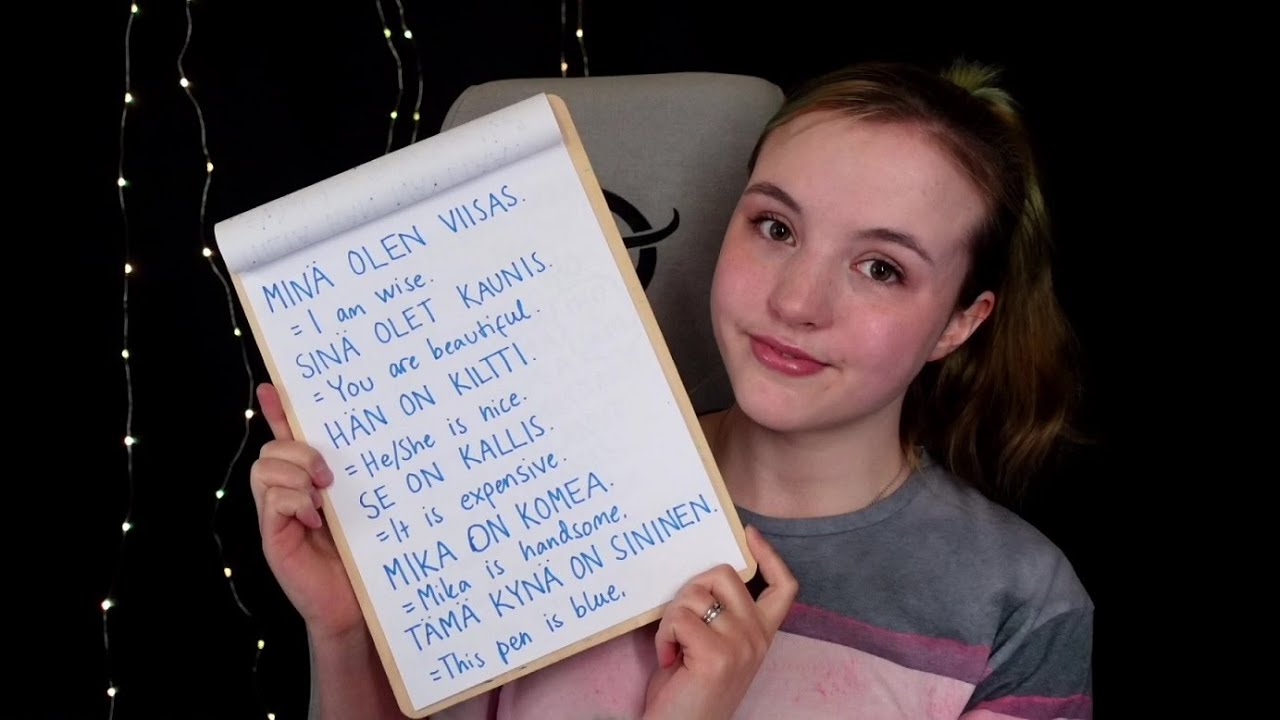 MINÄ OLEN VIISAS.
= I am wise.
SINÄ OLET KAUNIS.
= You are beautiful.
HÄN ON KILTTI.
= He/She is nice.
SE ON KALLIS.
= It is expensive.
MIKA ON KOMEA.
= Mika is handsome.
TÄMÄ KYNÄ ON SININEN.
= This pen is blue.